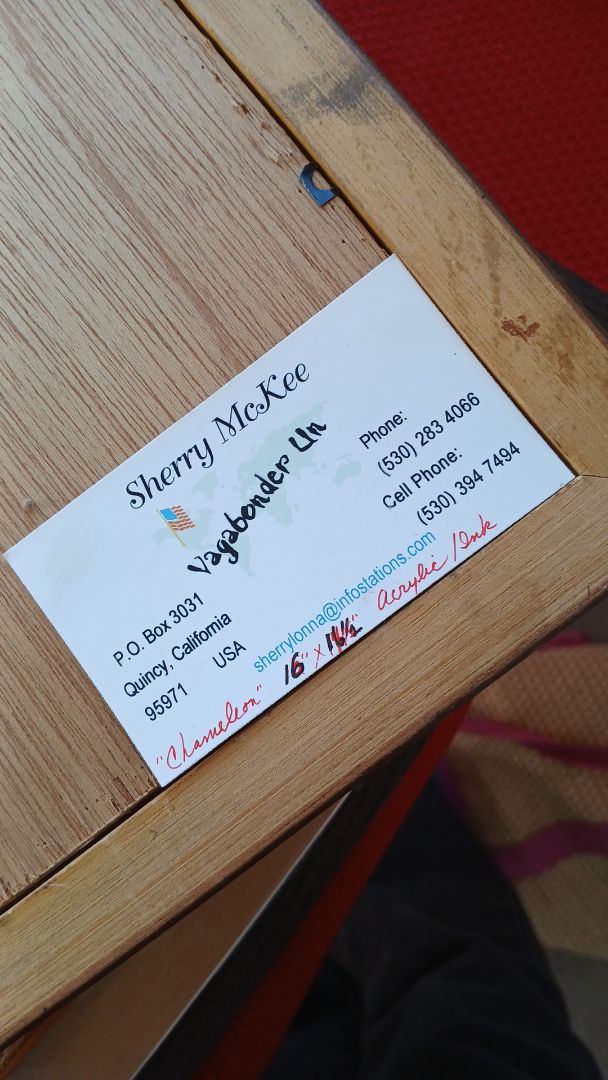 Sherry McKee
Vagabonder Un
Phone:
(530) 283 4066
Cell Phone:
(530) 394 7494
P.O. Box 3031
Quincy, California
95971 USA
sherrylonna@infostations.com
"Chameleon" 16" x Acrylic/Ink